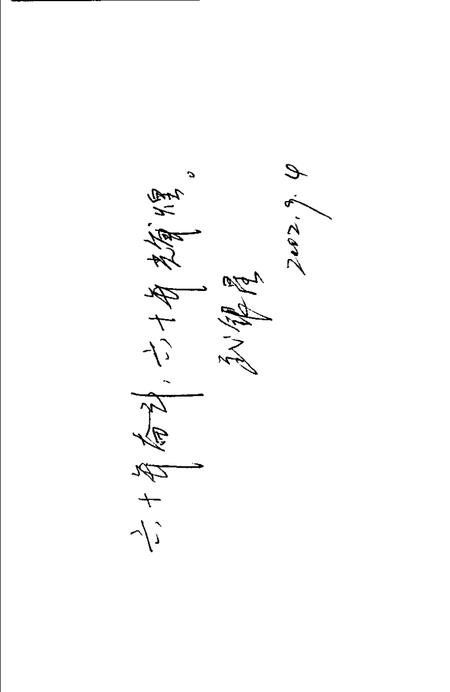 六十年奋斗,六十年光辉煌。
银星
2002.9.4